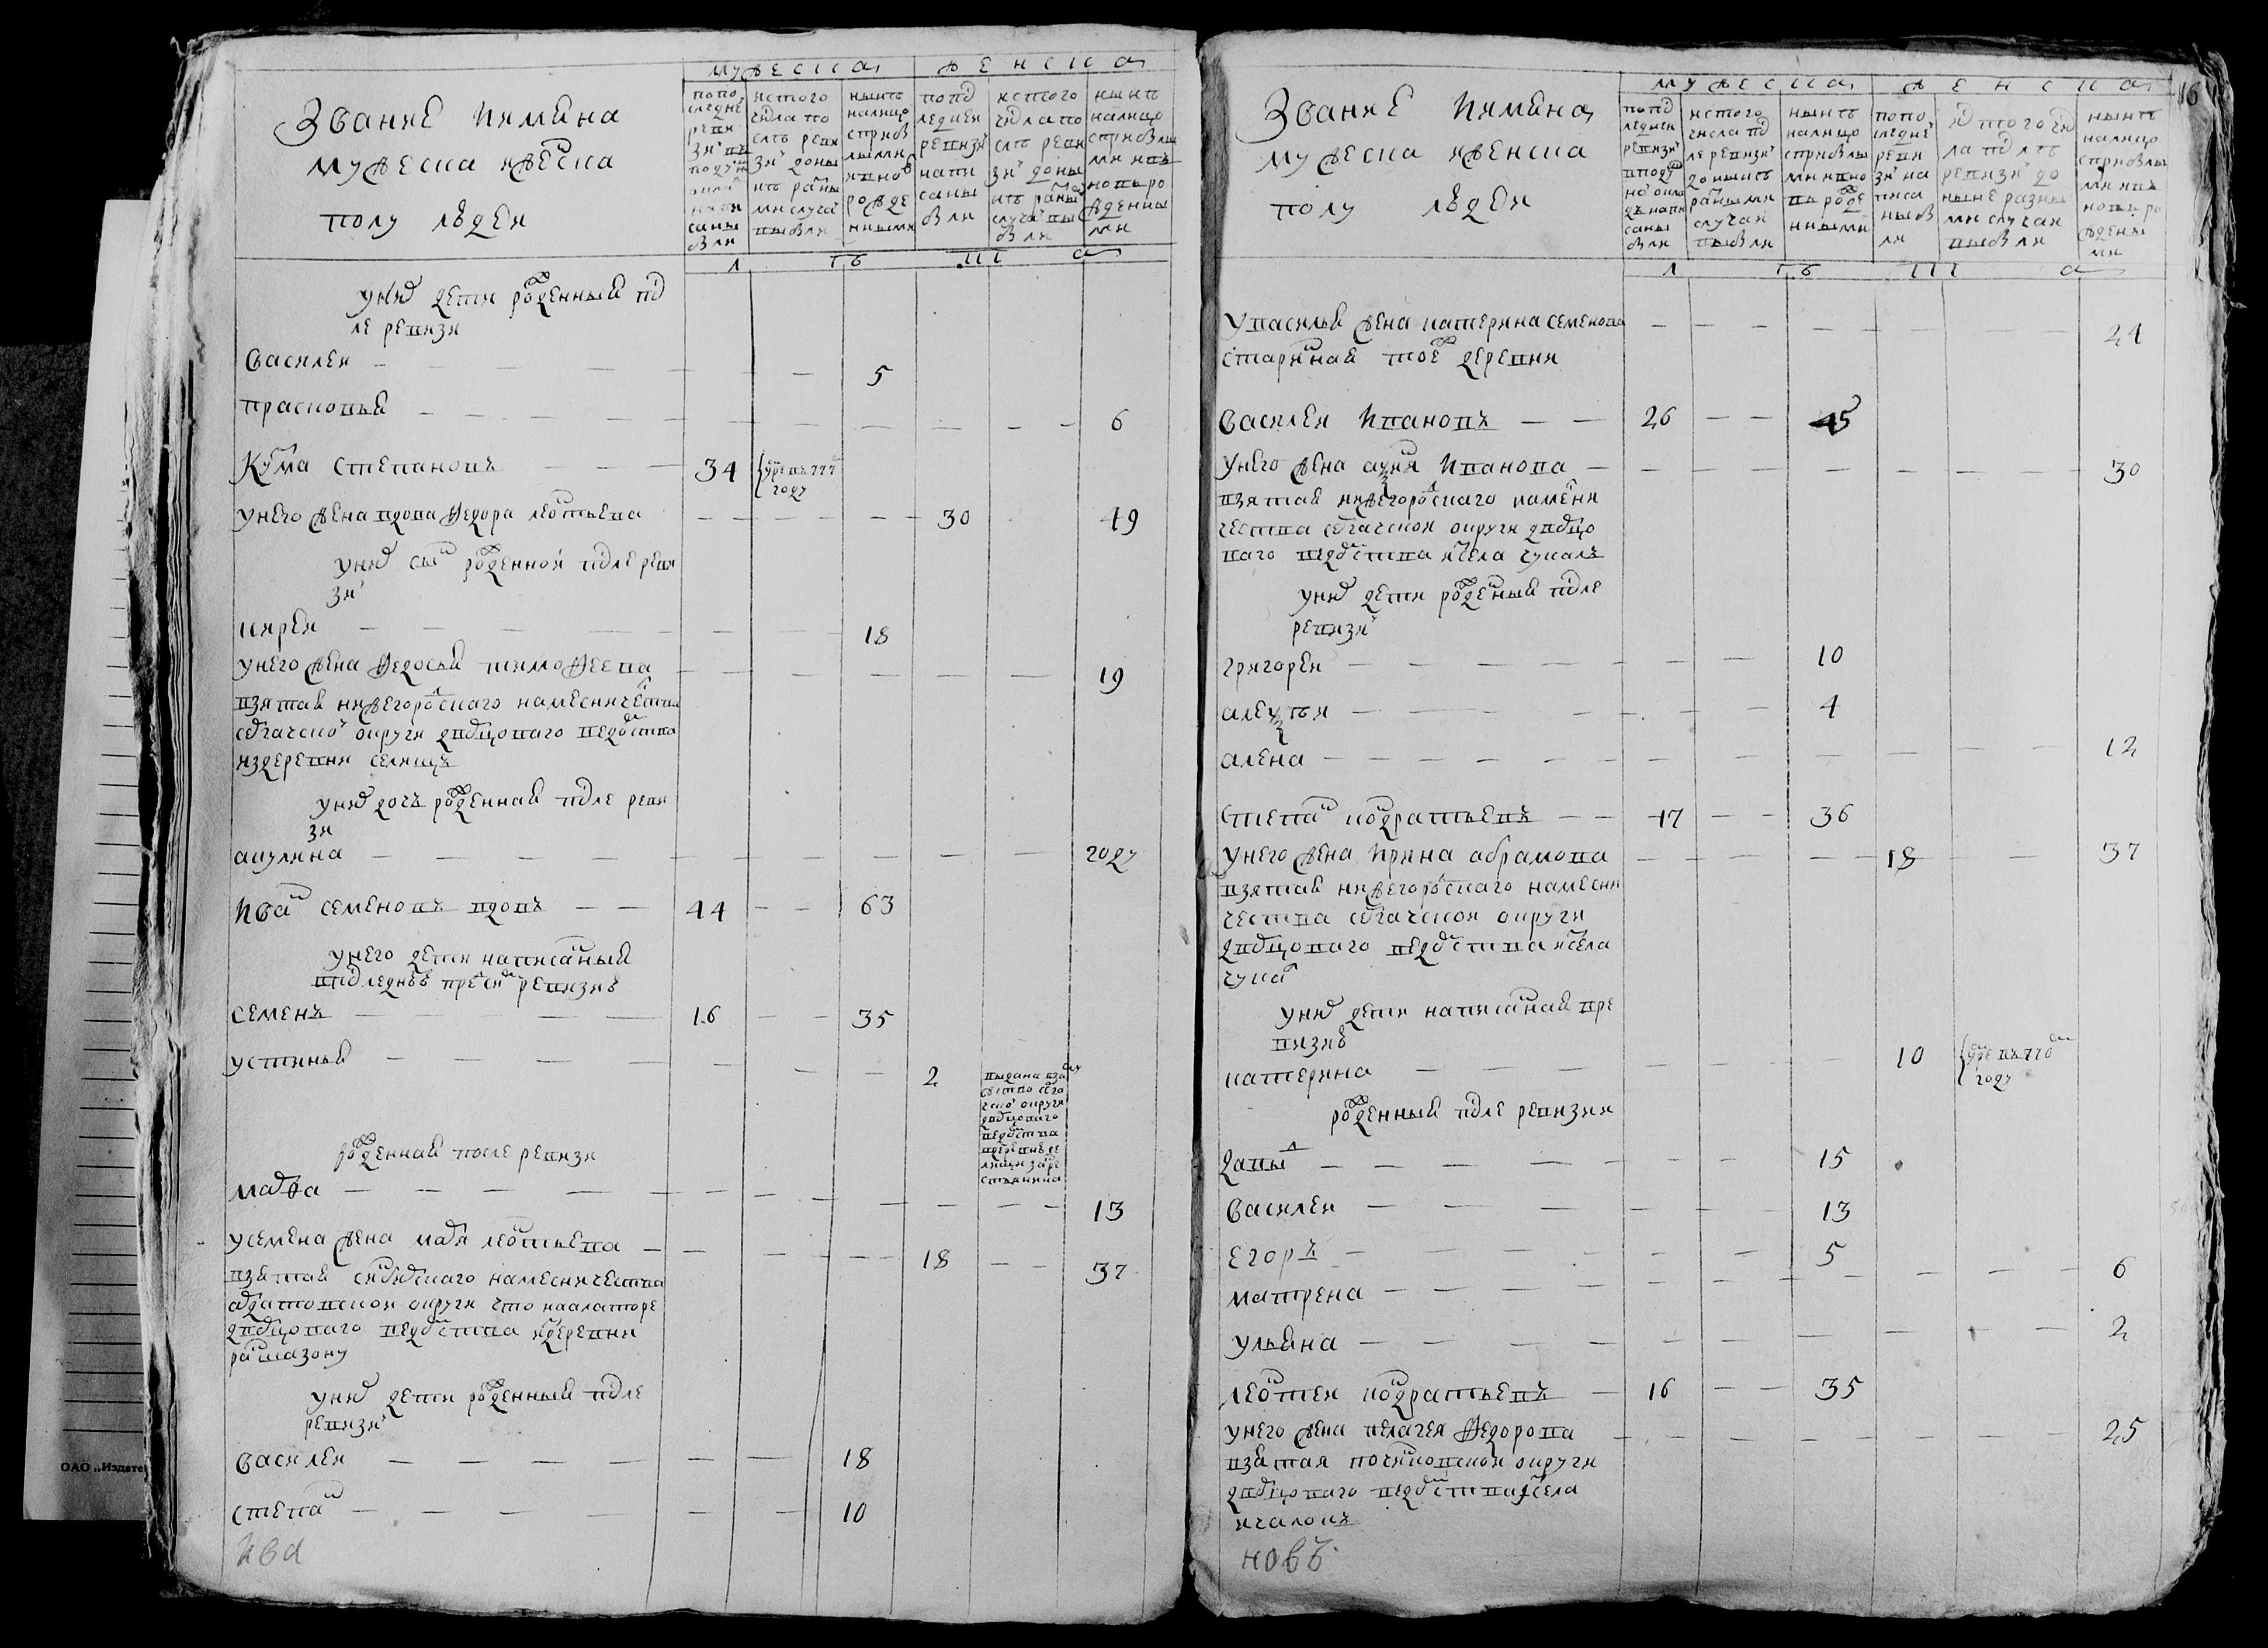 Звание и имена
мужеска и женска
полу людеи
мужеска
женска
по по
следне
реви
зи въ
подуш
ном
окла
напи
саны
были
ис того
числа по
слѣ реви
зи доны
нѣ разны
ми случа
выбыли
нынѣ
налицо
с прибы
лыми
и внов
рожде
нными
по по
следнеи
ревизи
напи
саны
были
ис того
числа по
слѣ реви
зи доны
нѣ разны
случа вы
были
нынѣ
налицо
с прибылы
ми и въ
новь ро
жденны
ми
лѣта
у них дети рожденныя пос
ле ревизи
Василеи 5
Прасковья 6
Кузма Степановъ 34 умре въ 777
году
у него жена вдова Федора Леонтьева 30 49
у них сын рожденнои после реви
зи
Киреи 18
у него жена Федосья Тимофеева 19
взятая нижегородского наместничества
сергачской округи дворцоваго ведомства
из деревни Селищъ
у них дочь рожденная после реви
зи
Акулина году
Иван Семеновъ вдовъ 44 63
у него дети написаныя
в последнею пред сим ревизию
Семенъ 16 35
Устинья 2 выдана в за
мужство серга
чской округи
дворцоваго
ведомства
в деревне Се
лищи за кре
стьянина
рожденная после ревизи
Марфа 13
у Семена жена Марья Леонтьева 18 37
взятая синбирскаго наместничества
ардатовской округи что на Алаторе
дворцоваго ведомства из деревни
у них дети рожденныя после
ревизи
Василеи 18
Степан 10
Ива
16
Звание и имена
мужеска и женска
полу людеи
мужеска
женска
по пос
леднеи
ревизи
в поду
шном окла
дъ напи
саны
были
ис того
числа пос
ле ревизи
доны нѣ
разными
случаи
выбыли
нынѣ
налицо
с прибылы
ми и вно
въ рожде
нными
по по
следне
реви
зи на
писа
ны бы
ли
ис того чи
ла послѣ
ревизи до
ныне разны
ми случаи
выбыли
нынѣ
налицо
с прибылы
ми и въ
новь ро
жденны
ми
лѣта
у Василья жена Катерина Семенова 24
старинная тоеж деревни
Василеи Ивановъ 26 45
у него жена Иванова 30
взятая нижегородскаго намесни
чества сергачской округи дворцо
ваго ведомства ис села Чукалъ
у них дети рожденыя после
ревизи
Григореи 10
4
Алена 12
Степан Кондратьевъ 17 36
у него жена Ирина Абрамова 18 37
взятая нижегородскаго намесни
чества сергачской округи
дворцоваго ведомства ис села
Чукал
у них дети написаная в ре
визию
Катерина 10 умре въ 770
году
рожденныя после ревизии
Давыд 15
Василеи 13
Егоръ 5
Матрена 6
Ульяна 2
Леонтеи Кондратьевъ 16 35
у него жена Пелагея Федорова 25
взятая починковской округи
дворцоваго ведомства ис села
Ичалокъ
новъ
ОАО „Издате